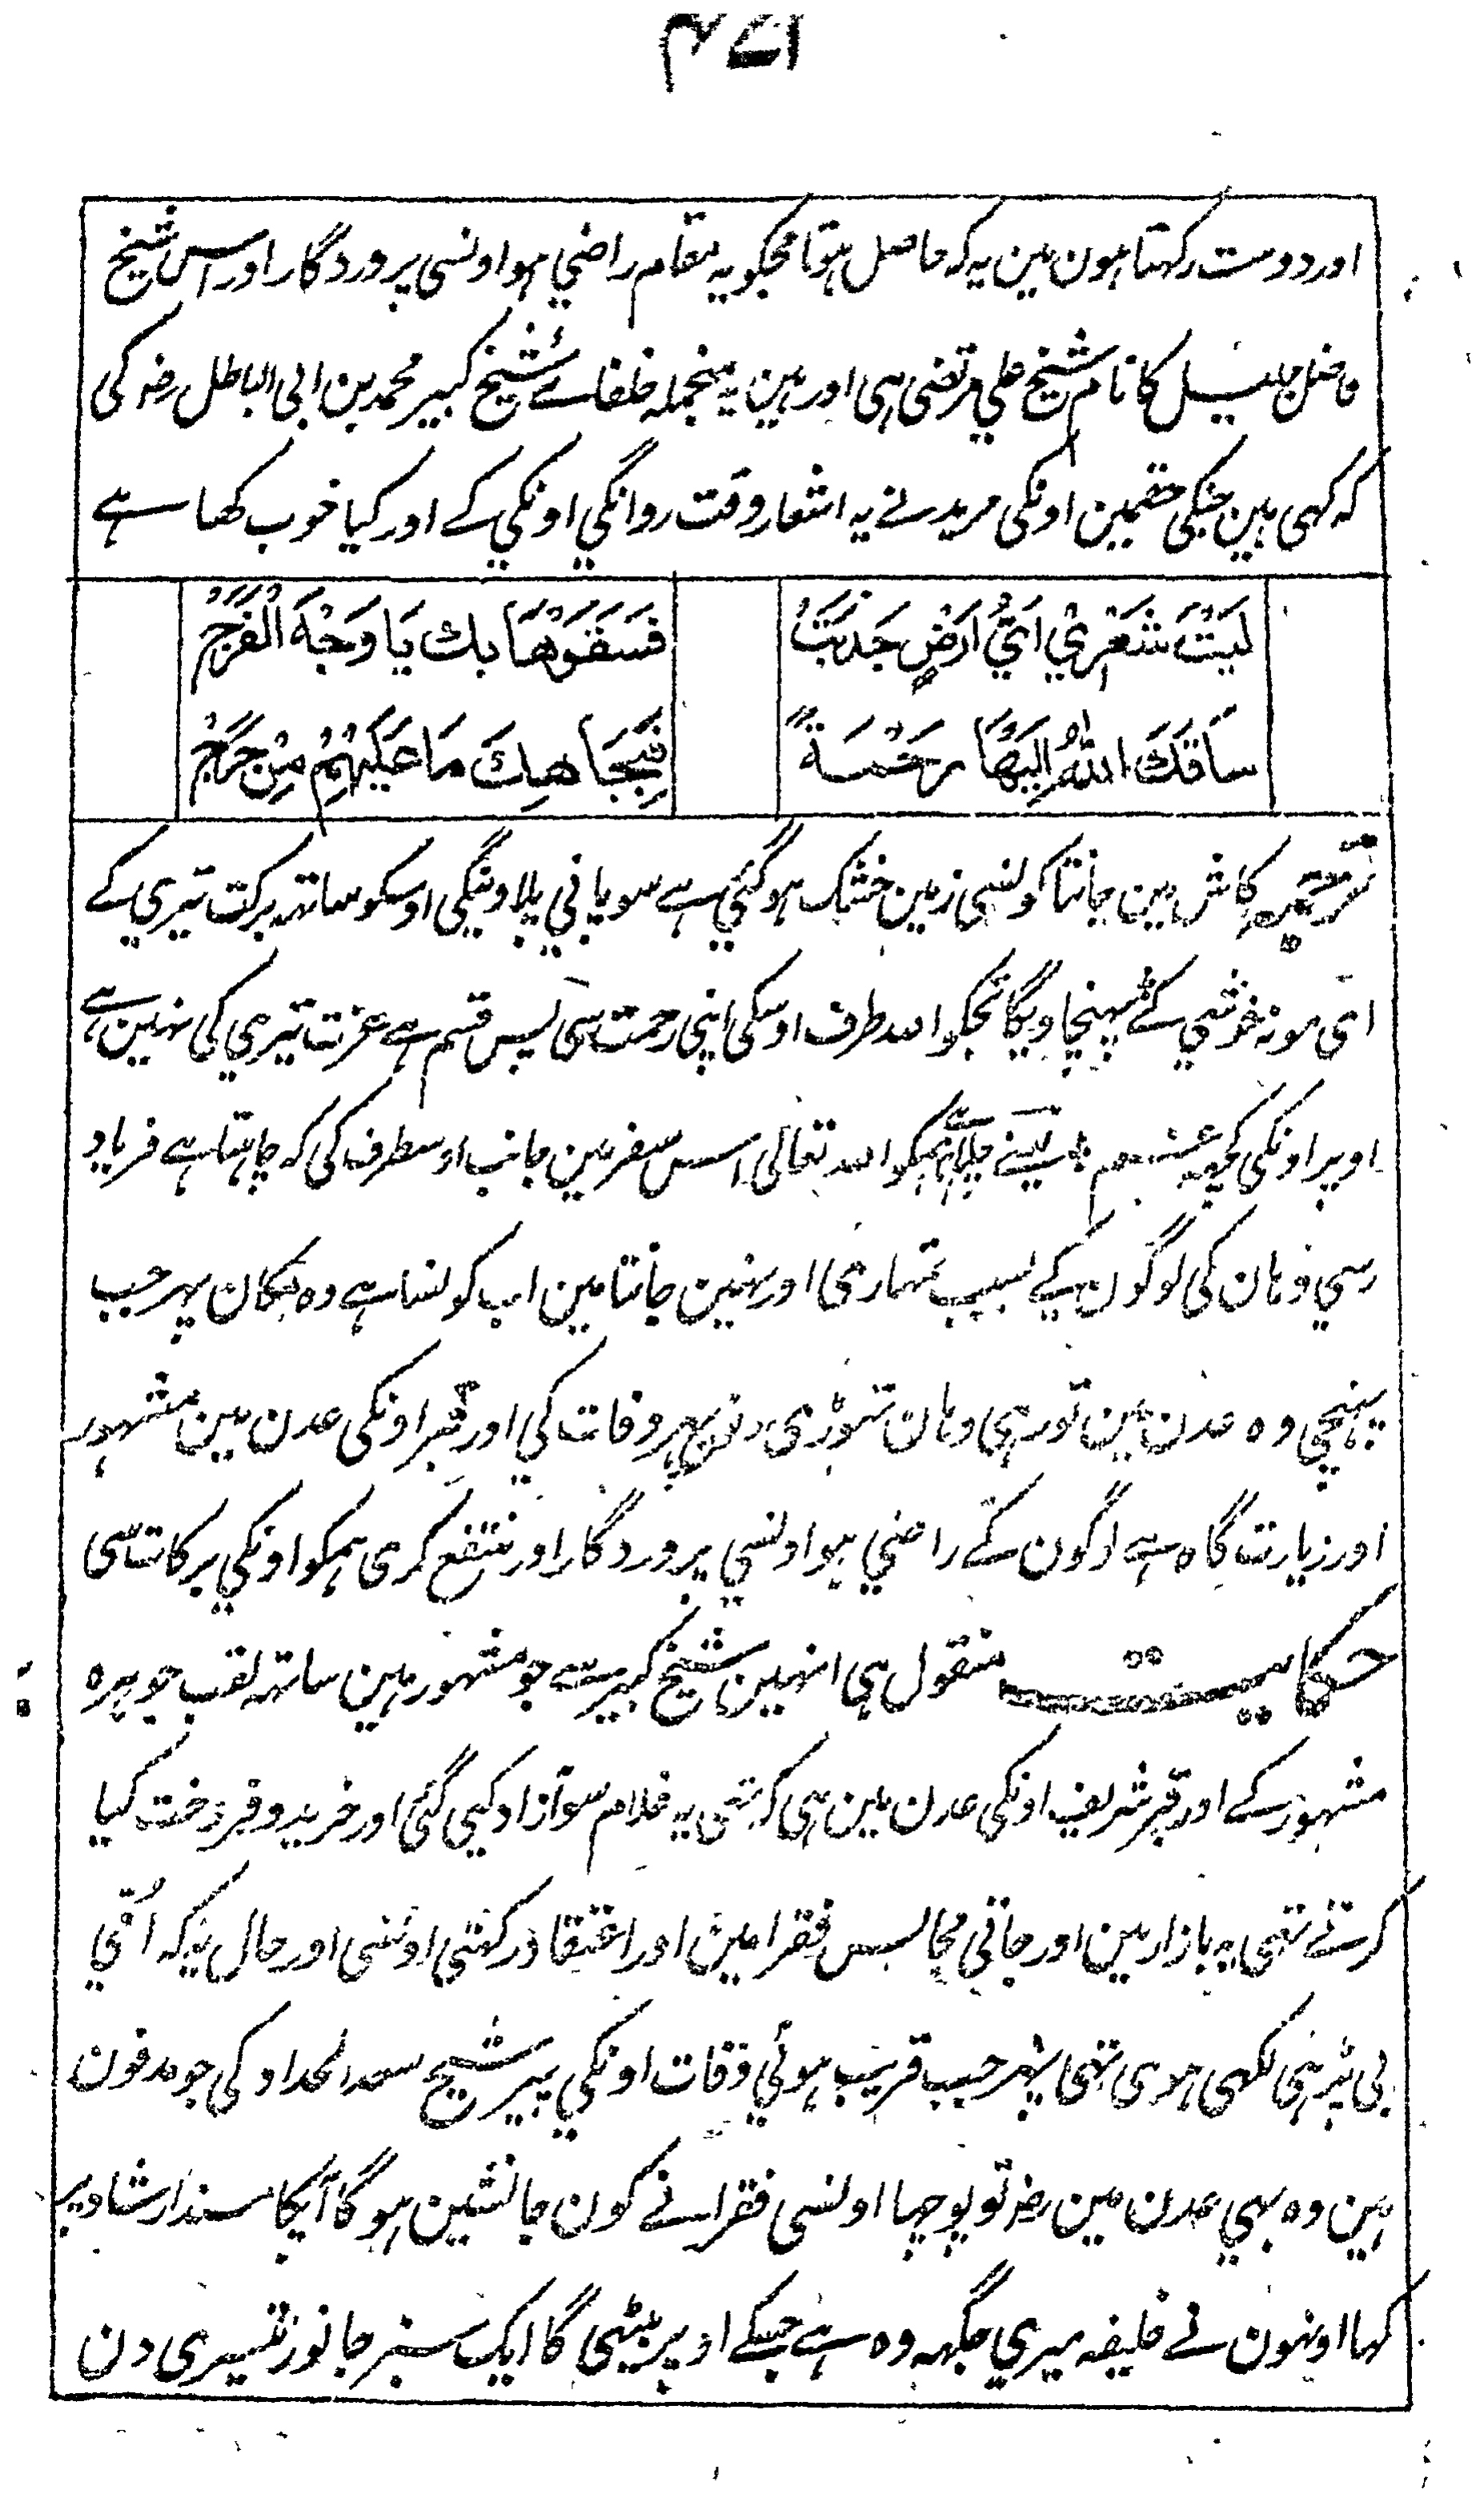 ۴۷۱
اور دوست رکہتا ہون مین یہ کہ حاصل ہوتا مجکو یہ مقام راضي ہو اونسی پروردگار اور اس شیخ
فاضل جلیل کا نام شیخ علي مرتضی ہی اور ہین یہ منجملہ خلفاے شیخ کبیر محمد بن ابی الباطل رضہ کی
کہ کہی ہین جنکی حقمین اونکی مرید نے یہ اشعار وقت روانگي اونکي کے اور کیا خوب کہا ہے
لَيْتَ شَعْرِيْ اَيُّ اَرْضٍ جَدَبَتْ
فَسَقَوْهَا بك يَا وَجْهَ الْفَرَجْ
سَاقَكَ اللهُ اِلَيْهَا رَحْمَةً
فَبِجَاهِكَ مَا عَلَيْهِمْ مِنْ حَرَجْ
ترجمہ کاش مین جانتا کونسی زمین خشک ہوگئي ہے سو پاني پلاوینگی اوسکو ساتہہ برکت تیری کے
ای مونہ خوشي کے پہنچاویگا تجکو اللہ طرف اوسکی اپنی رحمت سی پس قسم ہے عزت تیري کی نہین ہے
اوپر اونکی کچہہ یعنے چلاہیگا تمکو اللہ تعالی اس سفر مین جانب اوسطرف کی کہ چاہتا ہے فریاد
رسي وہان کی لوگون کے بسبب تمہاری اور نہین جانتا مین اب کونسا ہے وہ مکان پہر جب
پہنچی وہ عدن مین تو رہی وہان تہوڑی دن پہر وفات کي اور قبر اونکی عدن مین مشہور
اور زیارت گاہ ہے لوگون کے راضي ہو اونسي پروردگار اور منتفع کری ہمکو اونکي برکات سی
حکایت منقول ہی انہین شیخ کبیر سے جو مشہور ہین ساتہہ لقب جوہرہ
مشہور کے اور قبر شریف اونکی عدن مین ہی کہ تہی یہ غلام سو آزاد کیی گئی اور خرید و فروخت کیا
کرتے تہی یہ بازار مین اور جاتی مجالس فقرا مین اور اعتقاد رکہتی اونسی اور حال یہ کہ اُمّي
بی پڑہی لکہی ہوی تہی پہر جب قریب ہوئي وفات اونکي پیر شیخ سعد الحداد کی جو مدفون
ہین وہ بہي عدن مین رضہ تو پوچہا اونسی فقرا نے کون جانشین ہوگا آپکا مسند ارشاد پر
کہا اونہون نے خلیفہ میري جگہہ وہ ہے جسکے اوپر بیٹہی گا ایک سبز جانور تیسری دن